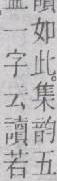 如此。集韵五
一字云讀若